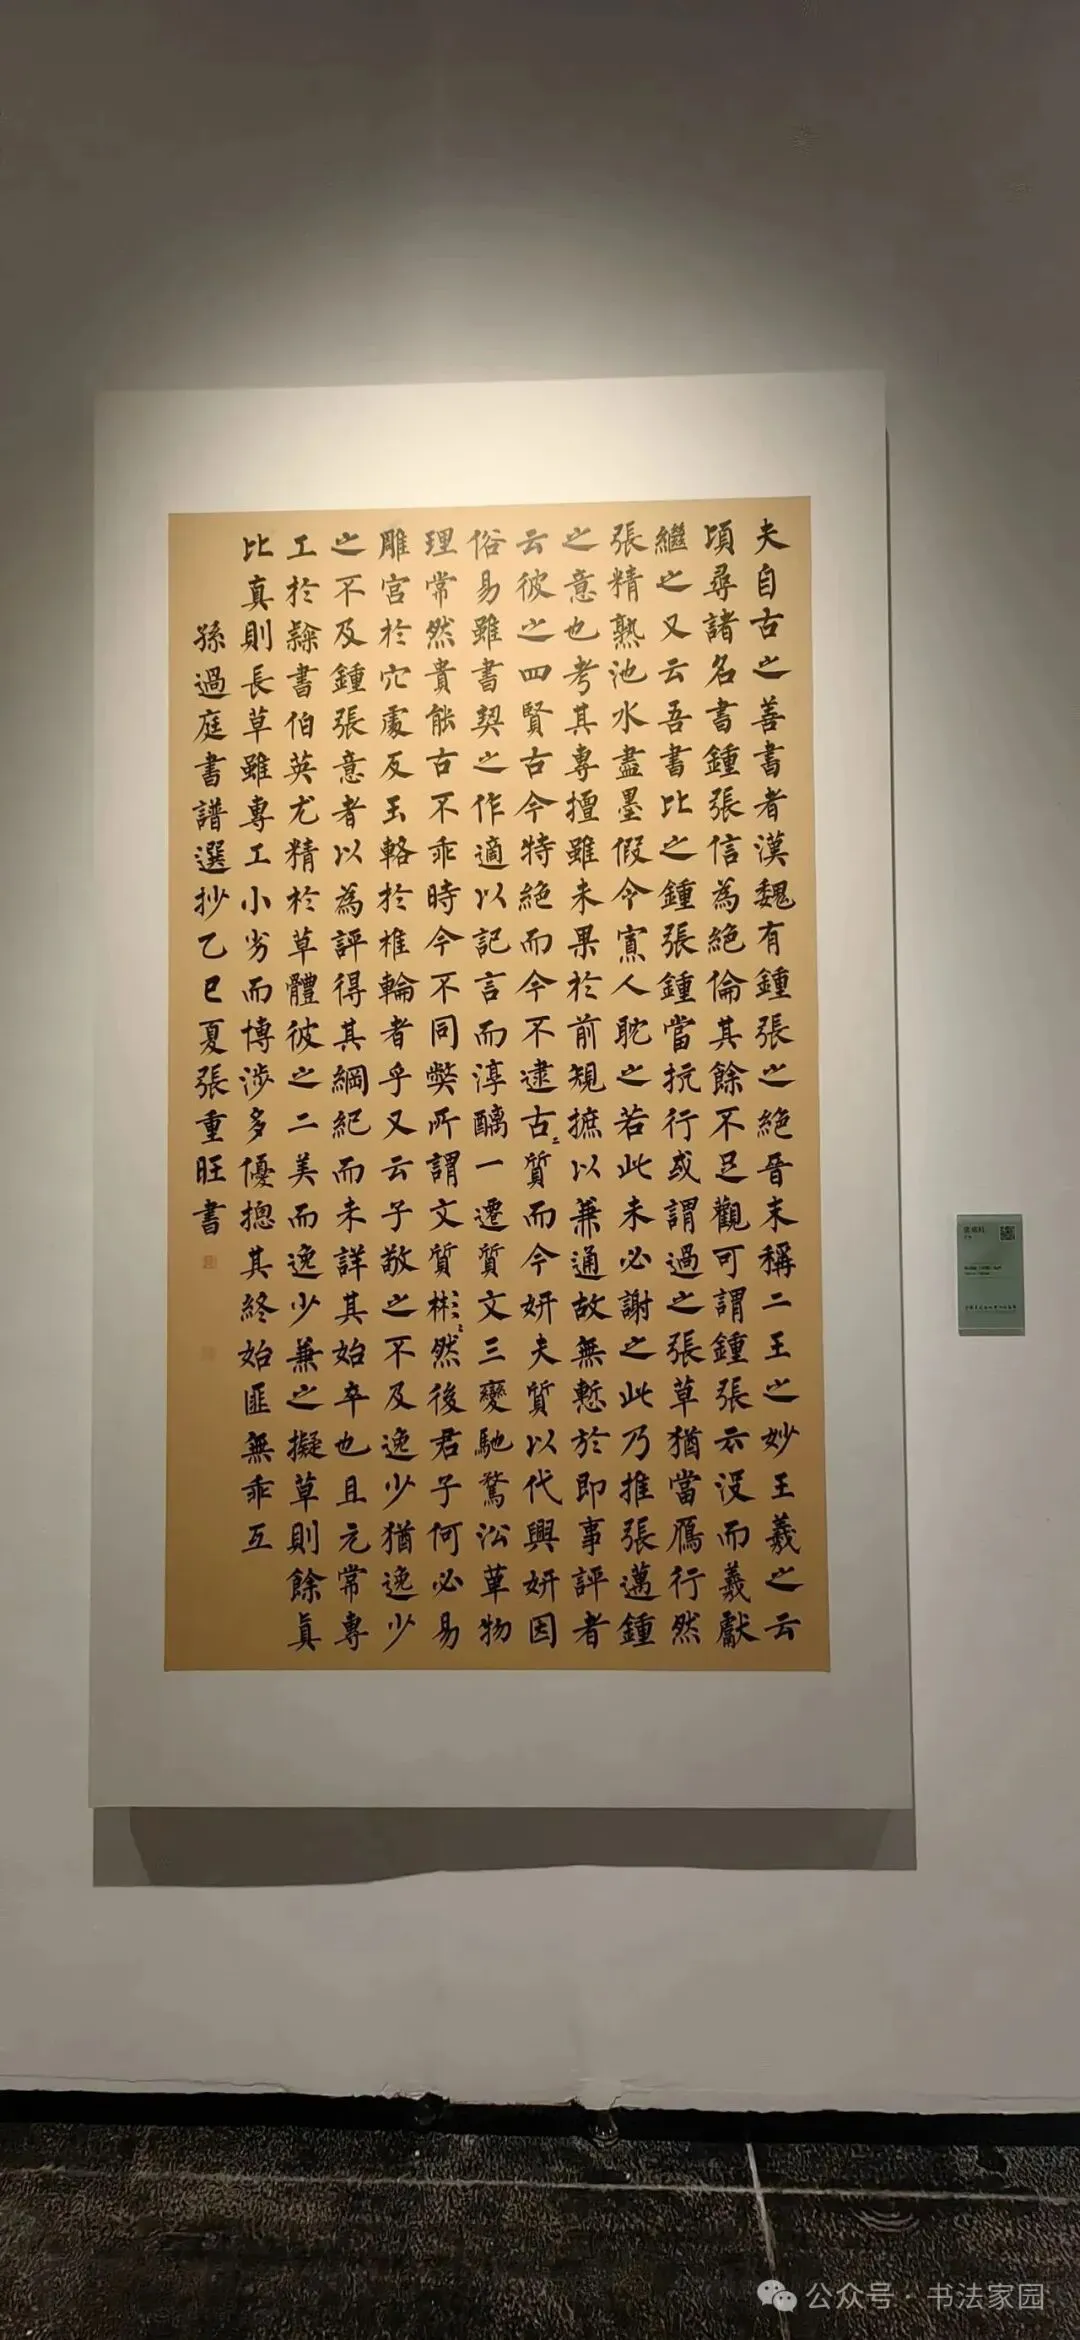 夫自古之善書者漢魏有鍾張之絕晉末稱二王之妙王羲之云
頃尋諸名書鍾張信為絕倫其餘不足觀可謂鍾張云沒而羲獻
繼之又云吾書比之鍾張鍾當抗行或謂過之張草猶當鴈行然
張精熟池水盡墨假令寡人耽之若此未必謝之此乃推張邁鍾
之意也考其專擅雖未果於前規摭以兼通故無慙於即事評者
云彼之四賢古今特絕而今不逮古〻質而今妍夫質以代興妍因
俗易雖書契之作適以記言而淳醨一遷質文三變馳騖沿革物
理常然貴能古不乖時今不同弊所謂文質彬〻然後君子何必易
雕宮於穴處反玉輅於椎輪者乎又云子敬之不及逸少猶逸少
之不及鍾張意者以為評得其綱紀而未詳其始卒也且元常專
工於隸書伯英尤精於草體彼之二美而逸少兼之擬草則餘真
比真則長草雖專工小劣而博涉多優摠其終始匪無乖互
孫過庭書譜選抄乙巳夏張重旺書
公众号·书法家园